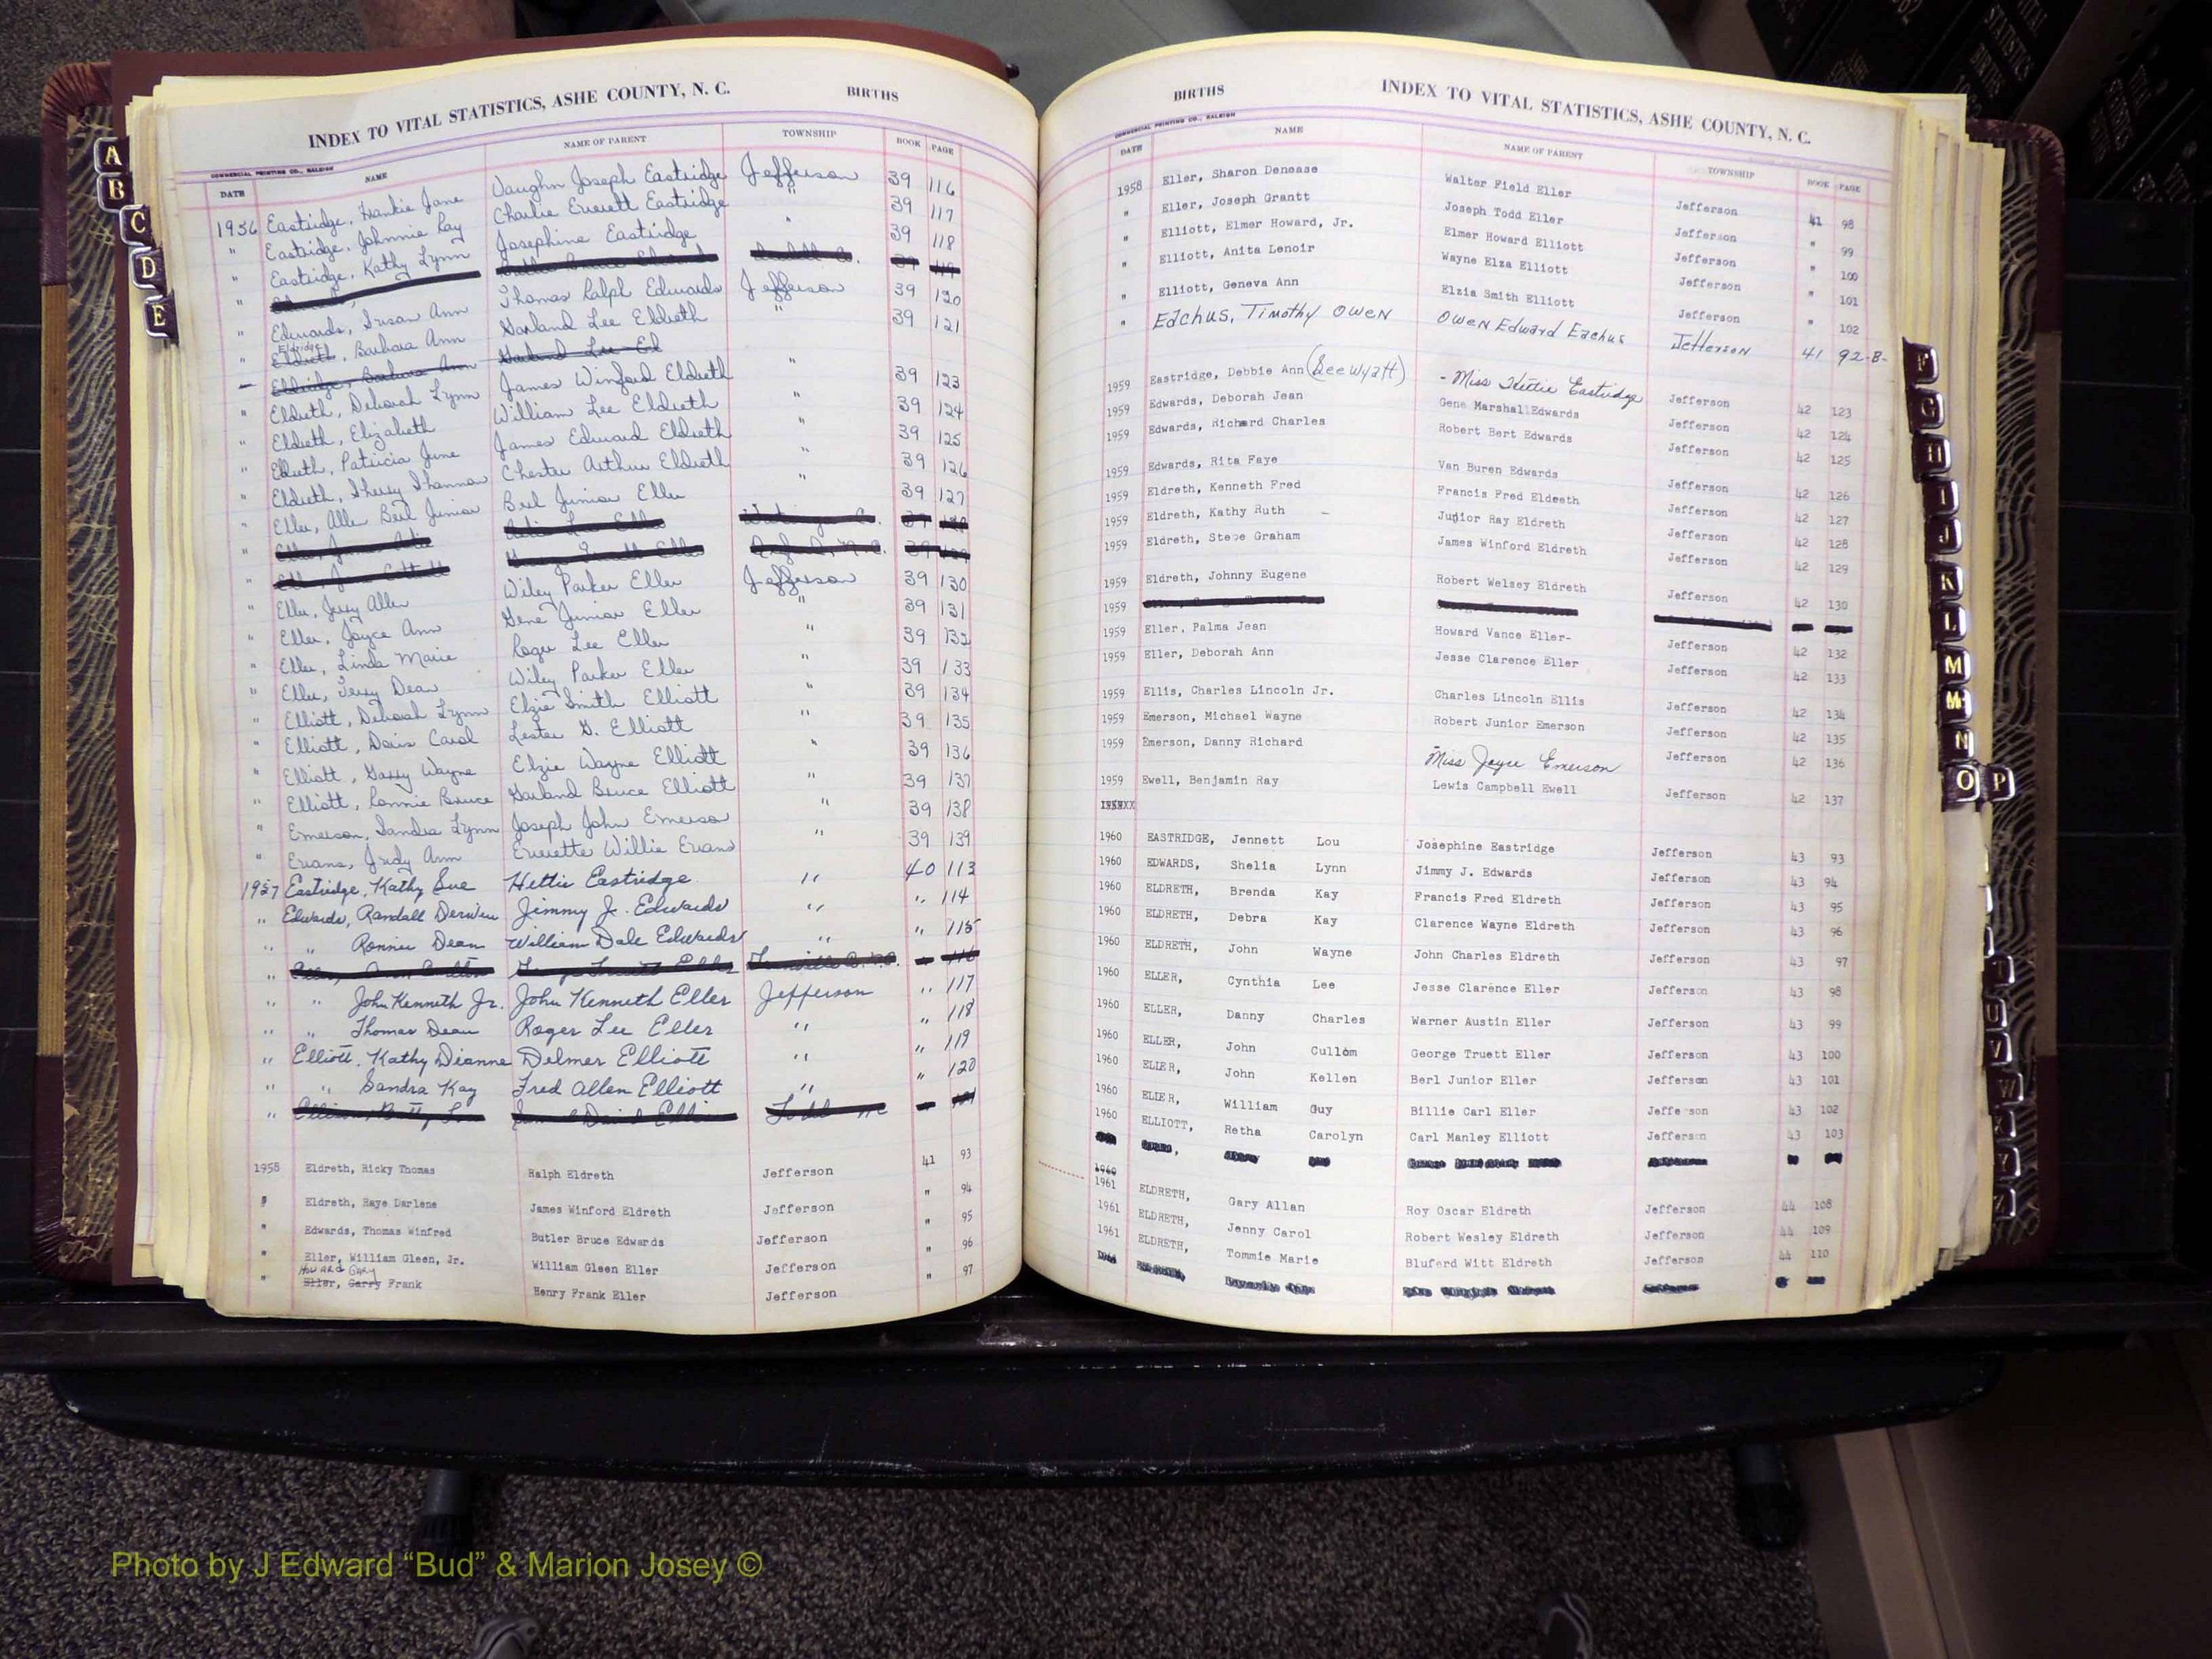 INDEX TO VITAL STATISTICS, ASHE COUNTY, N. C. BIRTHS
COMMERCIAL PRINTING CO., RALEIGH
DATE NAME NAME OF PARENT TOWNSHIP BOOK PAGE
1956 Eastridge, Frankie Jane Vaughn Joseph Eastridge Jefferson 39 116
" Eastridge, Johnnie Ray Charlie Everett Eastridge " 39 117
" Eastridge, Kathy Lynn Josephine Eastridge " 39 118
" 39 119
" Edwards, Susan Ann Thomas Ralph Edwards Jefferson 39 120
Eldridge
" Eldreth, Barbara Ann Garland Lee Eldreth " 39 121
Eldridge, Barbara Ann Garland Lee El
" Eldreth, Deborah Lynn James Winford Eldreth " 39 123
" Eldreth, Elizabeth William Lee Eldreth " 39 124
" Eldreth, Patricia June James Edward Eldreth " 39 125
" Eldreth, Sherry Shannon Chester Arthur Eldreth " 39 126
" Eller, Allen Berl Junior Berl Junior Eller " 39 127
"
"
" Eller, Jerry Allen Wiley Parker Eller Jefferson 39 130
" Eller, Joyce Ann Gene Junior Eller " 39 131
" Eller, Linda Marie Roger Lee Eller " 39 132
" Eller, Terry Dean Wiley Parker Eller " 39 133
" Elliott, Deborah Lynn Elzie Smith Elliott " 39 134
" Elliott, Doris Carol Lester G. Elliott " 39 135
" Elliott, Garry Wayne Elzie Wayne Elliott " 39 136
" Elliott, Lonnie Bruce Garland Bruce Elliott " 39 137
" Emerson, Sandra Lynn Joseph John Emerson " 39 138
" Evans, Judy Ann Everette Willie Evans " 39 139
1957 Eastridge, Kathy Sue Hettie Eastridge " 40 113
" Edwards, Randall Jimmy J. Edwards " " 114
" " Ronnie Dean William Dale Edwards " " 115
" 116
" " John Kenneth Jr. John Kenneth Eller Jefferson " 117
" " Thomas Dean Roger Lee Eller " " 118
" Elliott, Kathy Dianne Delmer Elliott " " 119
" " Sandra Kay Fred Allen Elliott " " 120
"
1958 Eldreth, Ricky Thomas Ralph Eldreth Jefferson 41 93
" Eldreth, Raye Darlene James Winford Eldreth Jefferson " 94
" Edwards, Thomas Winfred Butler Bruce Edwards Jefferson " 95
" Eller, William Gleen, Jr. William Gleen Eller Jefferson " 96
Howard Gary
" Eller, Garry Frank Henry Frank Eller Jefferson " 97
BIRTHS INDEX TO VITAL STATISTICS, ASHE COUNTY, N. C.
COMMERCIAL PRINTING CO., RALEIGH
DATE NAME NAME OF PARENT TOWNSHIP BOOK PAGE
1958 Eller, Sharon Denease Walter Field Eller Jefferson 41 98
" Eller, Joseph Grantt Joseph Todd Eller Jefferson " 99
" Elliott, Elmer Howard, Jr. Elmer Howard Elliott Jefferson " 100
" Elliott, Anita Lenoir Wayne Elza Elliott Jefferson " 101
" Elliott, Geneva Ann Elzia Smith Elliott Jefferson " 102
" Eachus, Timothy Owen Owen Edward Eachus Jefferson 41 92-B-
1959 Eastridge, Debbie Ann (See Wyatt) - Miss Hettie Eastridge Jefferson 42 123
1959 Edwards, Deborah Jean Gene Marshall Edwards Jefferson 42 124
1959 Edwards, Richard Charles Robert Bert Edwards Jefferson 42 125
1959 Edwards, Rita Faye Van Buren Edwards Jefferson 42 126
1959 Eldreth, Kenneth Fred Francis Fred Eldeeth Jefferson 42 127
1959 Eldreth, Kathy Ruth Junior Ray Eldreth Jefferson 42 128
1959 Eldreth, Steve Graham James Winford Eldreth Jefferson 42 129
1959 Eldreth, Johnny Eugene Robert Welsey Eldreth Jefferson 42 130
1959
1959 Eller, Palma Jean Howard Vance Eller- Jefferson 42 132
1959 Eller, Deborah Ann Jesse Clarence Eller Jefferson 42 133
1959 Ellis, Charles Lincoln Jr. Charles Lincoln Ellis Jefferson 42 134
1959 Emerson, Michael Wayne Robert Junior Emerson Jefferson 42 135
1959 Emerson, Danny Richard Miss Joyce Emerson Jefferson 42 136
1959 Ewell, Benjamin Ray Lewis Campbell Ewell Jefferson 42 137
1960 EASTRIDGE, Jennett Lou Josephine Eastridge Jefferson 43 93
1960 EDWARDS, Shelia Lynn Jimmy J. Edwards Jefferson 43 94
1960 ELDRETH, Brenda Kay Francis Fred Eldreth Jefferson 43 95
1960 ELDRETH, Debra Kay Clarence Wayne Eldreth Jefferson 43 96
1960 ELDRETH, John Wayne John Charles Eldreth Jefferson 43 97
1960 ELLER, Cynthia Lee Jesse Clarence Eller Jefferson 43 98
1960 ELLER, Danny Charles Warner Austin Eller Jefferson 43 99
1960 ELLER, John Cullom George Truett Eller Jefferson 43 100
1960 ELLER, John Kellen Berl Junior Eller Jefferson 43 101
1960 ELLER, William Guy Billie Carl Eller Jefferson 43 102
1960 ELLIOTT, Retha Carolyn Carl Manley Elliott Jefferson 43 103
1960
1961 ELDRETH, Gary Allan Roy Oscar Eldreth Jefferson 44 108
1961 ELDRETH, Jenny Carol Robert Wesley Eldreth Jefferson 44 109
1961 ELDRETH, Tommie Marie Bluferd Witt Eldreth Jefferson 44 110
A
B
C
D
E
F
G
H
I
J
K
L
M
Mc
N
O P
T
U
V
W
Photo by J Edward “Bud” & Marion Josey ©